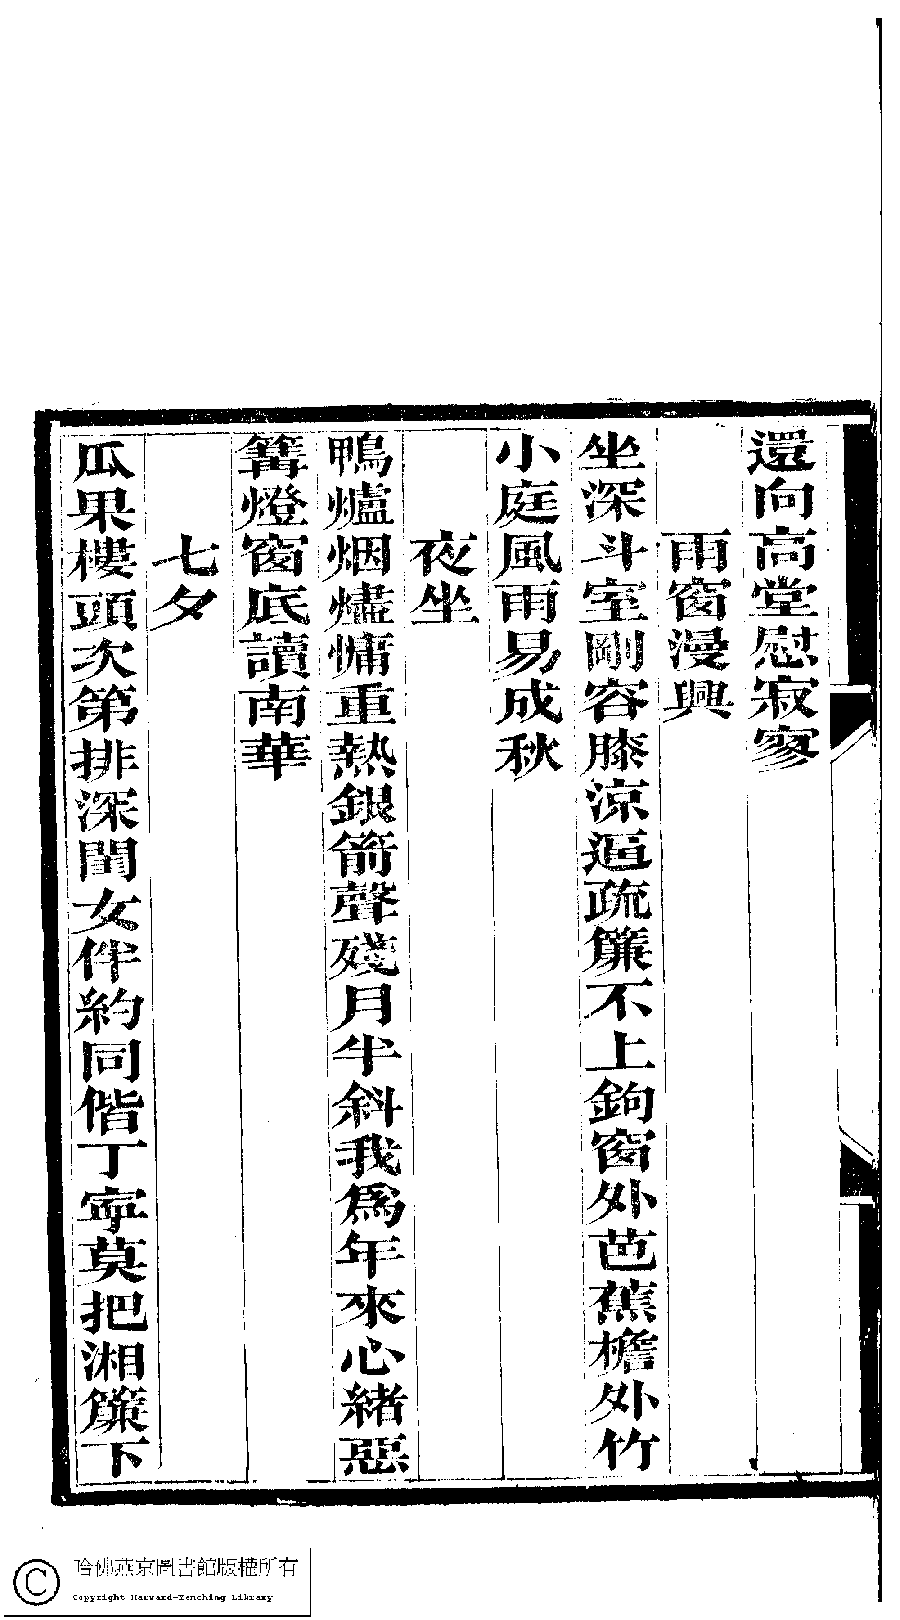 還向高堂慰寂寥
雨窗漫興
坐深斗室剛容膝涼逼疏簾不上鉤窗外芭蕉檐外竹
小庭風雨易成秋
夜坐
鴨爐烟燼慵重熱銀箭聲殘月半斜我爲年來心緒惡
篝燈窗底讀南華
七夕
瓜果樓頭次第排深閨女伴約同偕丁寧莫把湘簾下
哈佛燕京圖書館版權所有
Copyright Harvard-Yenching Library